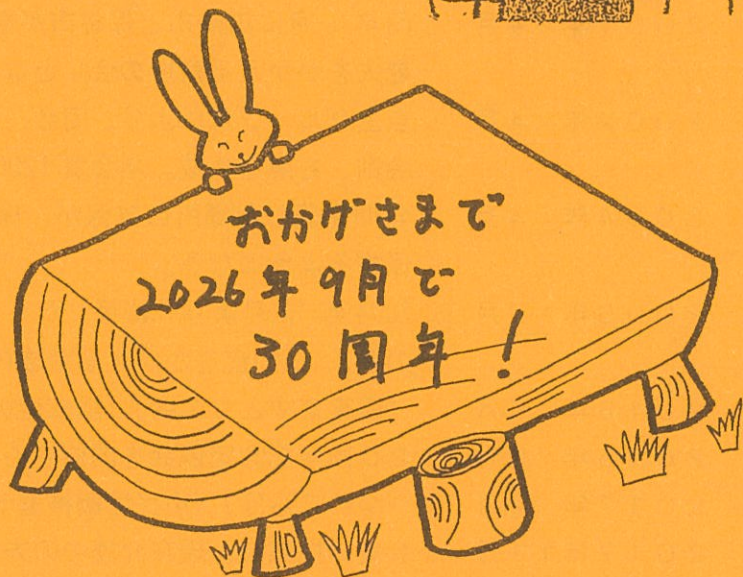 おかげさまで
2026年9月で
30周年!